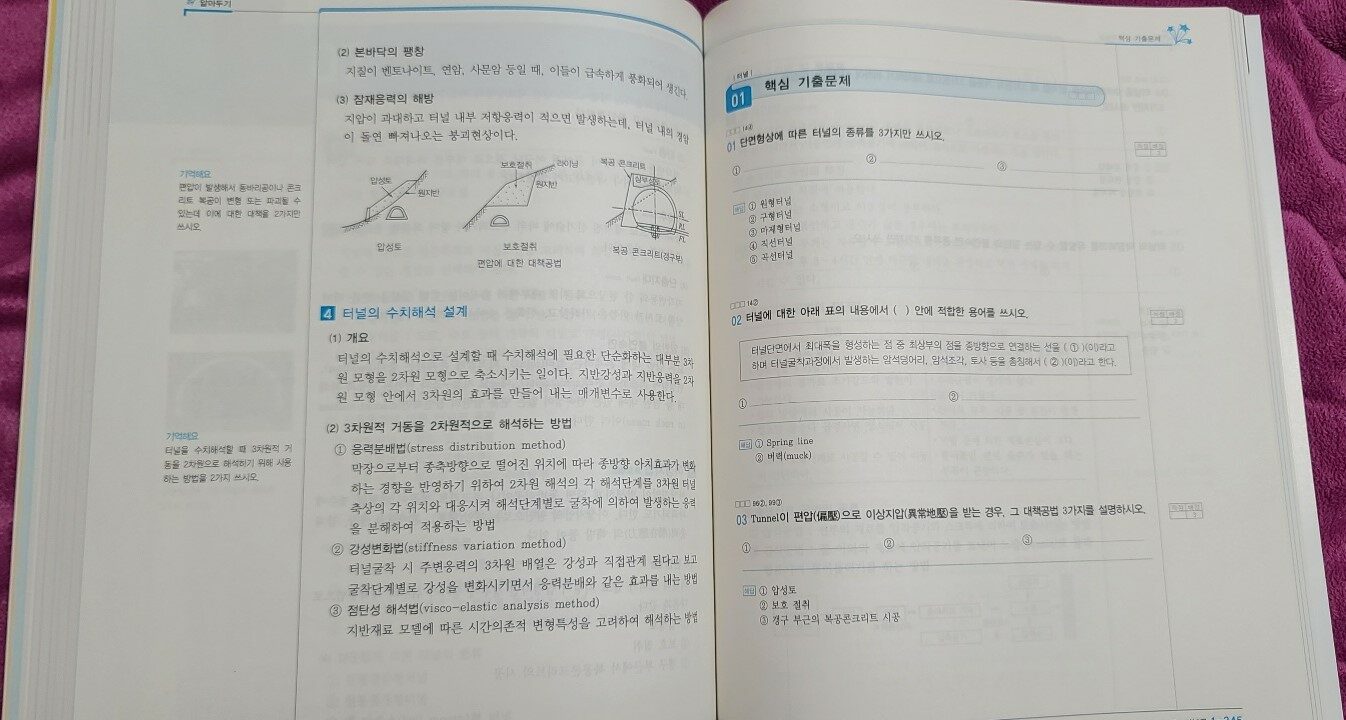 알아두기
(2) 본바닥의 팽창
지질이 벤토나이트, 연암, 사문암 등일 때, 이들이 급속하게 풍화되어 생긴다.
(3) 잠재응력의 해방
지압이 과대하고 터널 내부 저항응력이 적으면 발생하는데, 터널 내의 경암
이 돌연 빠져나오는 붕괴현상이다.
기억해요
편압이 발생해서 동바리공이나 콘크
리트 복공이 변형 또는 파괴될 수
있는데 이에 대한 대책을 2가지만
쓰시오.
압성토
원지반
압성토
보호절취
라이닝
원지반
보호절취
복공 콘크리트
SL
FL
복공 콘크리트(갱구부)
편압에 대한 대책공법
4 터널의 수치해석 설계
(1) 개요
터널의 수치해석으로 설계할 때 수치해석에 필요한 단순화하는 대부분 3차
원 모형을 2차원 모형으로 축소시키는 일이다. 지반강성과 지반응력을 2차
원 모형 안에서 3차원의 효과를 만들어 내는 매개변수로 사용한다.
(2) 3차원적 거동을 2차원적으로 해석하는 방법
기억해요
터널을 수치해석할 때 3차원적 거
동을 2차원으로 해석하기 위해 사용
하는 방법을 2가지 쓰시오.
① 응력분배법(stress distribution method)
막장으로부터 종축방향으로 떨어진 위치에 따라 종방향 아치효과가 변화
하는 경향을 반영하기 위하여 2차원 해석의 각 해석단계를 3차원 터널
축상의 각 위치와 대응시켜 해석단계별로 굴착에 의하여 발생하는 응력
을 분해하여 적용하는 방법
② 강성변화법(stiffness variation method)
터널굴착 시 주변응력의 3차원 배열은 강성과 직접관계 된다고 보고
굴착단계별로 강성을 변화시키면서 응력분배와 같은 효과를 내는 방법
③ 점탄성 해석법(visco-elastic analysis method)
지반재료 모델에 따른 시간의존적 변형특성을 고려하여 해석하는 방법
핵심 기출문제
| 터널 |
01 핵심 기출문제
□□□ 14④
01 단면형상에 따른 터널의 종류를 3가지만 쓰시오.
득점 배점
3
① ② ③
해답 ① 원형터널
② 구형터널
③ 마제형터널
④ 직선터널
⑤ 곡선터널
□□□ 14②
02 터널에 대한 아래 표의 내용에서 ( ) 안에 적합한 용어를 쓰시오.
득점 배점
터널단면에서 최대폭을 형성하는 점 중 최상부의 점을 종방향으로 연결하는 선을 ( ① )(이)라고
하며 터널굴착과정에서 발생하는 암석덩어리, 암석조각, 토사 등을 총칭해서 ( ② )(이)라고 한다.
① ②
해답 ① Spring line
② 버력(muck)
□□□ 96②, 99③
03 Tunnel이 편압(偏壓)으로 이상지압(異常地壓)을 받는 경우, 그 대책공법 3가지를 설명하시오.
득점 배점
3
① ② ③
해답 ① 압성토
② 보호 절취
③ 갱구 부근의 복공콘크리트 시공